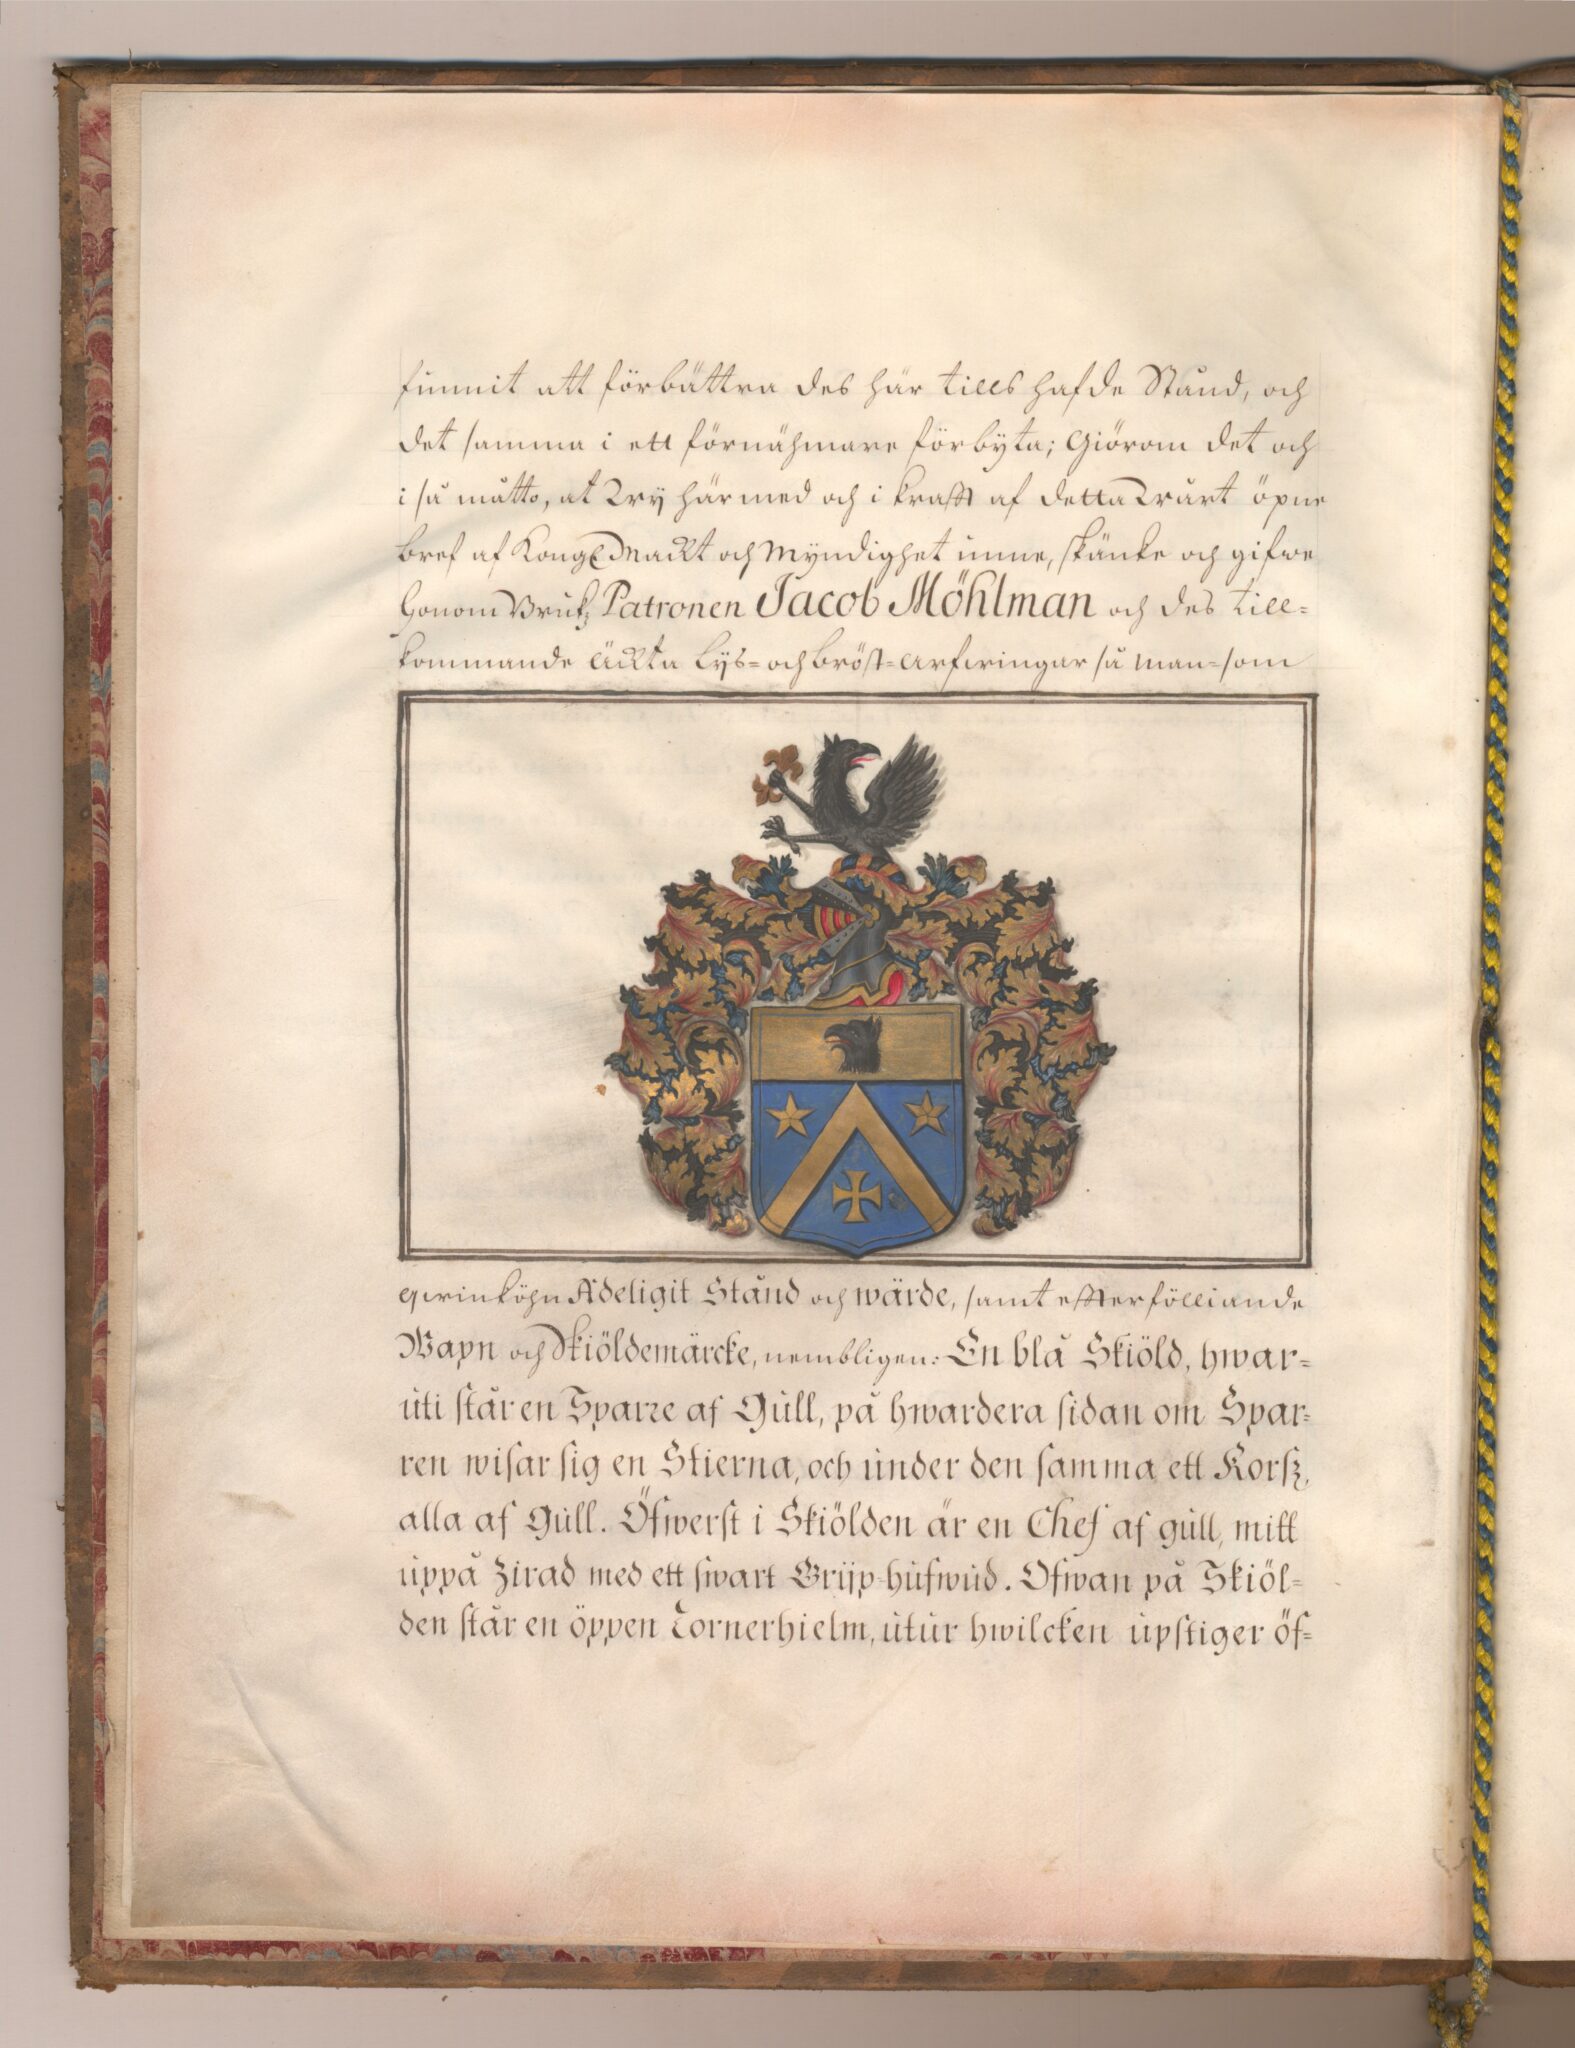 funnit att förbättra des här tills hafde Stånd, och
det samma i ett förnähmare förbyta; Giörom det och
i så måtto, at Wy härmed och i krafft af detta Wårt öpne
bref af Kongl Mackt och Myndighet unne, skänke och gifwe
honom Bruks Patronen Jacob Möhlman och des till=
kommande ächta Lijs= och bröst=arfwingar så man=som
qwinköhn Adeligit Stånd och wärde, samt effterfölliande
Wapn och Skiöldemärcke, nembligen: En blå Skiöld, hwar=
uti står en Sparre af Gull, på hwardera sidan om Spar=
ren wisar sig en Stierna, och under den samma ett Korss,
alla af Gull. Öfwerst i Skiölden är en Chef af gull, mitt
uppå Zirad med ett swart Grijp-hufwud. Ofwan på Skiöl=
den står en öppen Tornerhielm, utur hwilcken upstiger öf=